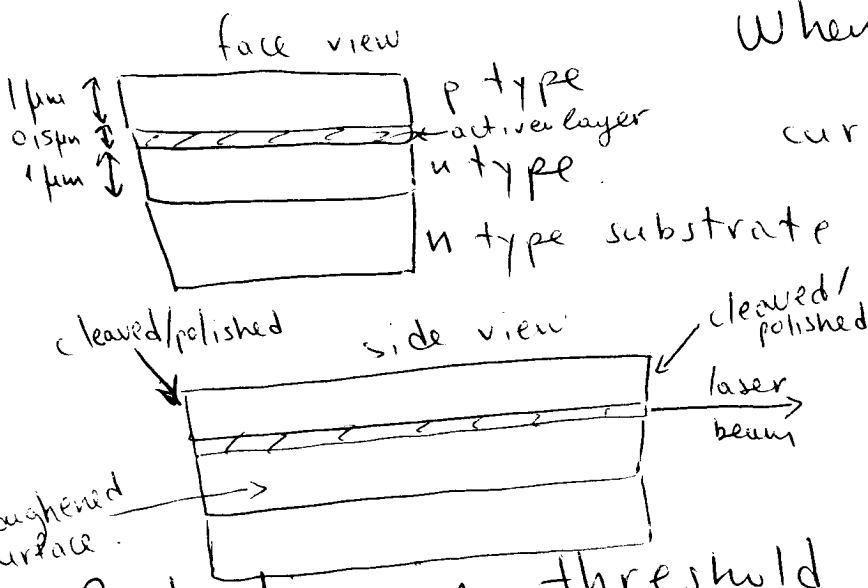 face view
When
1 μm
p type
0,5μm
active layer
cur
1 μm
n type.
n type substrate
cleaved/polished
side view
cleaved/
polished
laser
beam
oughened
urface.
threshold